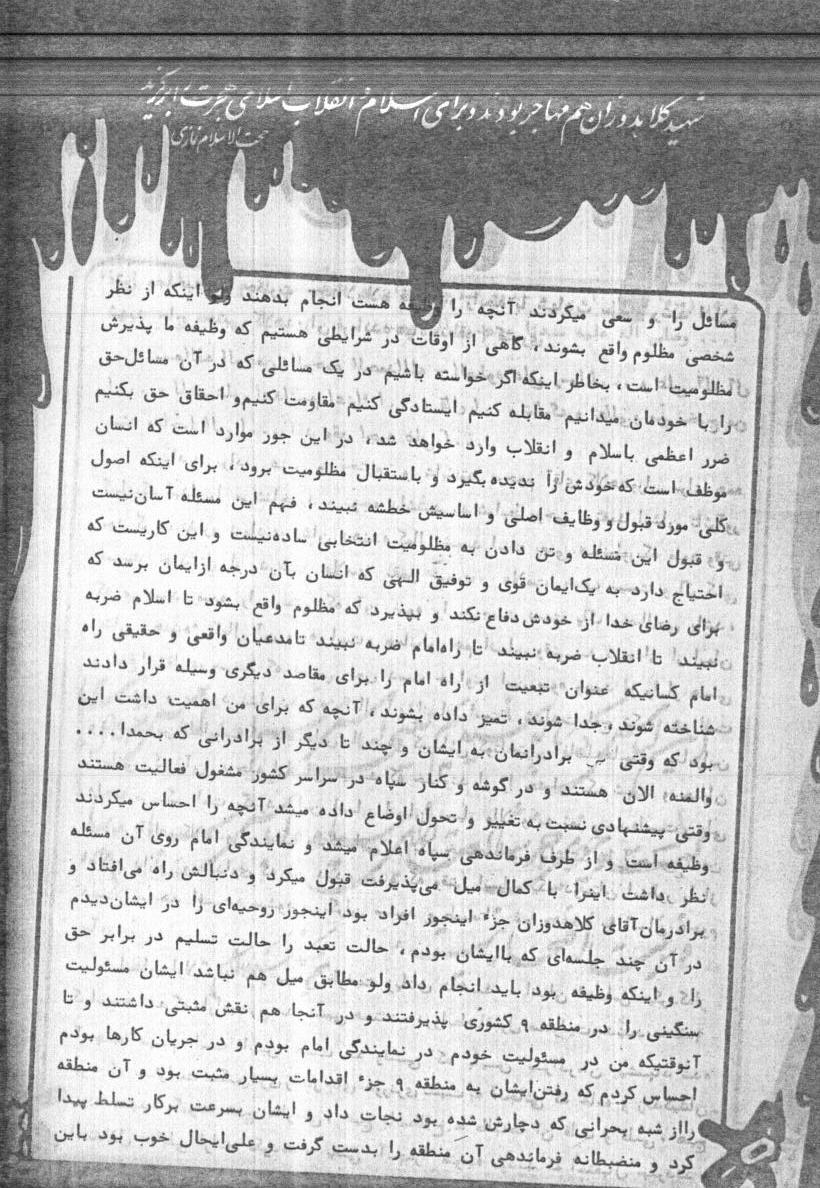 شهید کلاهدوزان هم مهاجر بودند و برای اسلام و انقلاب اسلامی هجرت را برگزید
حجت الاسلام نمازی
مسائل را و سعی میکردند آنچه را وظیفه هست انجام بدهند ولو اینکه از نظر
شخصی مظلوم واقع بشوند، گاهی از اوقات در شرایطی هستیم که وظیفه ما پذیرش
مظلومیت است، بخاطر اینکه اگر خواسته باشیم در یک مسائلی که در آن مسائل‌حق
را با خودمان میدانیم مقابله کنیم ایستادگی کنیم مقاومت کنیم‌و احقاق حق بکنیم
ضرر اعظمی باسلام و انقلاب وارد خواهد شد، در این جور موارد است که انسان
موظف است که خودش را ندیده بگیرد و باستقبال مظلومیت برود، برای اینکه اصول
کلی مورد قبول و وظایف اصلی و اساسیش خطشه نبیند، فهم این مسئله آسان‌نیست
و قبول این مسئله و تن دادن به مظلومیت انتخابی ساده‌نیست و این کاریست که
احتیاج دارد به یک‌ایمان قوی و توفیق الهی که انسان بآن درجه ازایمان برسد که
برای رضای خدا از خودش دفاع نکند و بپذیرد که مظلوم واقع بشود تا اسلام ضربه
نبیند تا انقلاب ضربه نبیند تا راه‌امام ضربه نبیند تامدعیان واقعی و حقیقی راه
امام کسانیکه عنوان تبعیت از راه امام را برای مقاصد دیگری وسیله قرار دادند
شناخته شوند، جدا شوند، تمیز داده بشوند، آنچه که برای من اهمیت داشت این
بود که وقتی برادرانمان به ایشان و چند تا دیگر از برادرانی که بحمدا....
والمنه الان هستند و در گوشه و کنار سپاه در سراسر کشور مشغول فعالیت هستند
وقتی پیشنهادی نسبت به تغییر و تحول اوضاع داده میشد آنچه را احساس میکردند
وظیفه است و از طرف فرماندهی سپاه اعلام میشد و نمایندگی امام روی آن مسئله
نظر داشت اینرا با کمال میل می‌پذیرفت قبول میکرد و دنبالش راه می‌افتاد و
برادرمان آقای کلاهدوزان جزء اینجور افراد بود اینجور روحیه‌ای را در ایشان‌دیدم
در آن چند جلسه‌ای که باایشان بودم، حالت تعبد را حالت تسلیم در برابر حق
را و اینکه وظیفه بود باید انجام داد ولو مطابق میل هم نباشد ایشان مسئولیت
سنگینی را در منطقه ۹ کشوری پذیرفتند و در آنجا هم نقش مثبتی داشتند و تا
آنوقتیکه من در مسئولیت خودم در نمایندگی امام بودم و در جریان کارها بودم
احساس کردم که رفتن‌ایشان به منطقه ۹ جزء اقدامات بسیار مثبت بود و آن منطقه
رااز شبه بحرانی که دچارش شده بود نجات داد و ایشان بسرعت برکار تسلط پیدا
کرد و منضبطانه فرماندهی آن منطقه را بدست گرفت و علی‌ایحال خوب بود باین